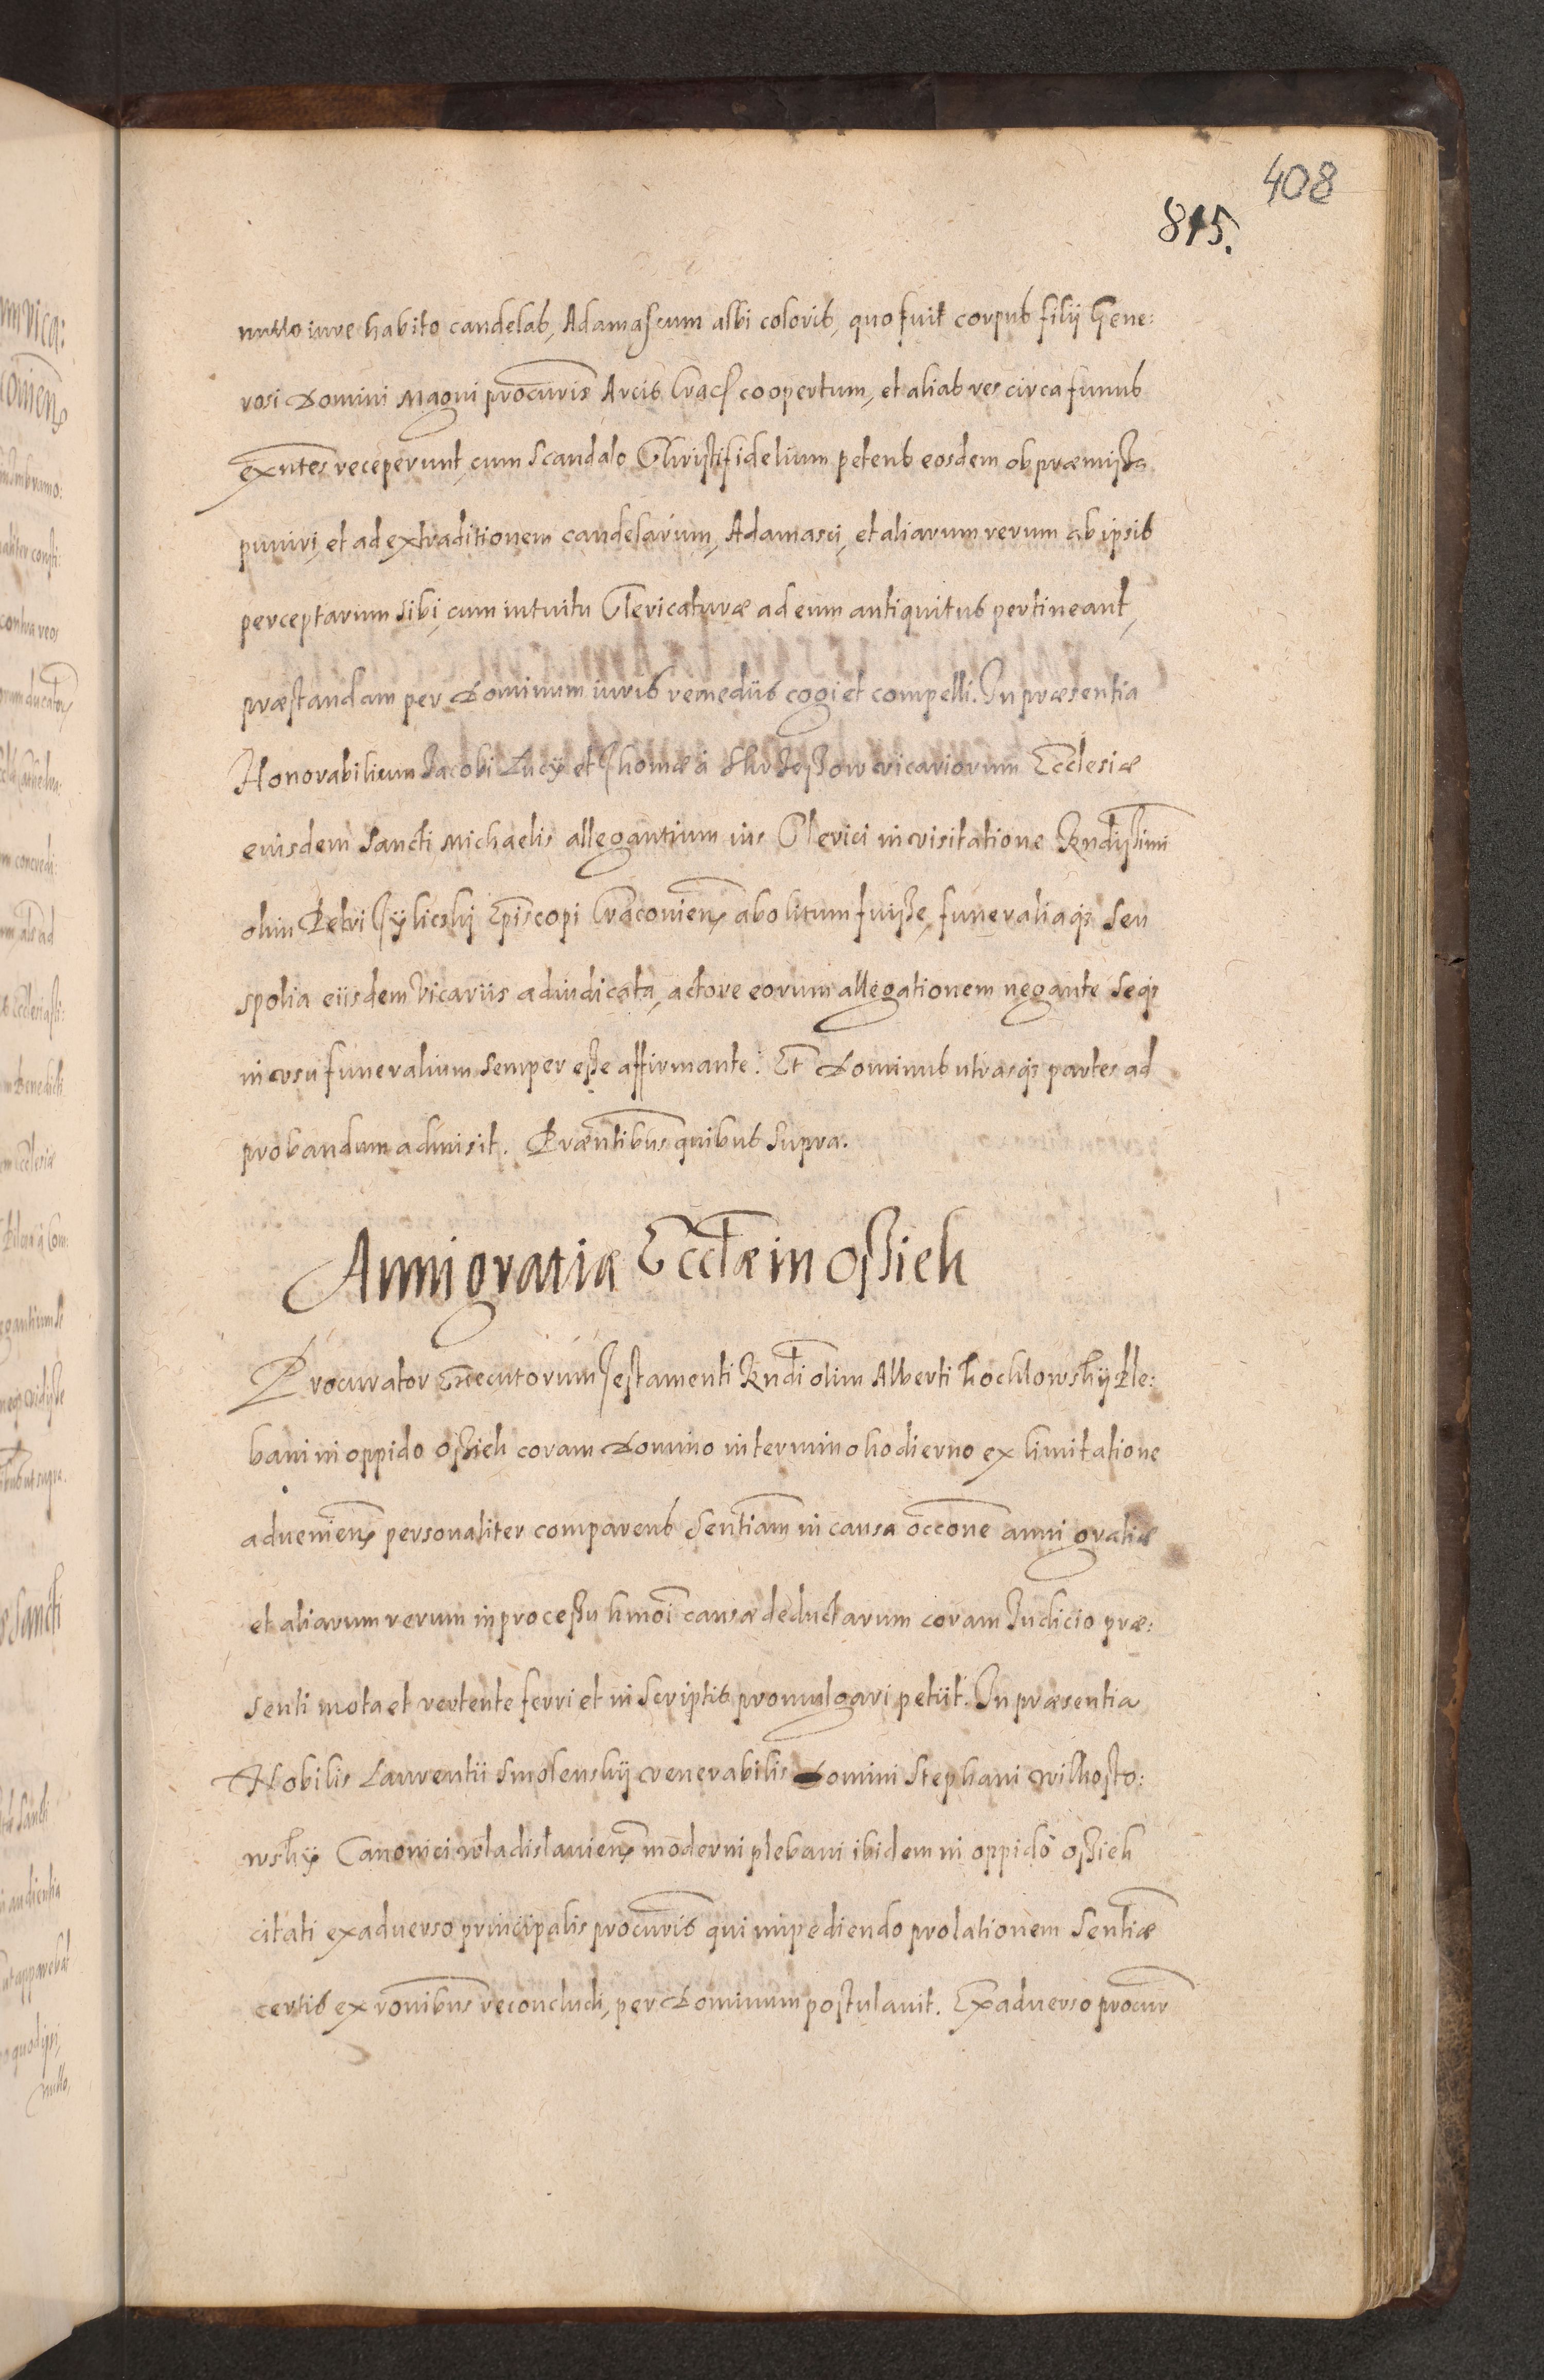 408
815.
nullo iure habito candelas, Adamascum albi coloris, quo fuit corpus filij Gene:
rosi Domini Magni procuris Arcis Crac coopertum, et alias res circa funus
exntes receperunt, cum scandalo Christifidelium petens eosdem ob præmissa
puniri, et ad extraditionem candelarum, Adamasci, et aliarum rerum ab ipsis
perceptarum sibi, cum intuitu Clericaturæ ad eum antiquitus pertineant,
præstandam per Dominum iuris remediis cogi et compelli. In præsentia
Honorabilium Jacobi Lucij et Thomæ à vicariorum Ecclesiæ
eiusdem Sancti Michaelis allegantium ius Clerici in visitatione Rndissimi
olim Petri Tylicskj Episcopi Cracouien abolitum fuisse, funeraliaqs seu
spolia eiisdem Vicariis adiudicata, actore eorum allegationem negante seqs
in vsu funeralium semper esse affirmante. Et Dominus vtrasqs partes ad
probandum admisit. Præntibus quibus supra.
Anni gratiæ Eccłæ in Ossiek
Procurator Executorum Testamenti Rndi olim Alberti Kochlowskij Ple:
bani in oppido Ossiek coram Domino in termino hodierno ex limitatione
adueniens personaliter comparens Sentiam in causa occone anni gratiæ
et aliarum rerum in processu hmoi causæ deductarum coram Judicio præ:
senti mota et vertente ferri et in scriptis promulgari petiit. In præsentia
Nobilis Laurentii Smolenskij venerabilis Domini Stephani Wilkosto:
wskij Canonici Wladislauien moderni plebani ibidem in oppido Ossiek
citati ex aduerso principalis procuris qui impediendo prolationem Sentiæ
certis ex ronibus reconcludi, per Dominum postulauit. Ex aduerso procur